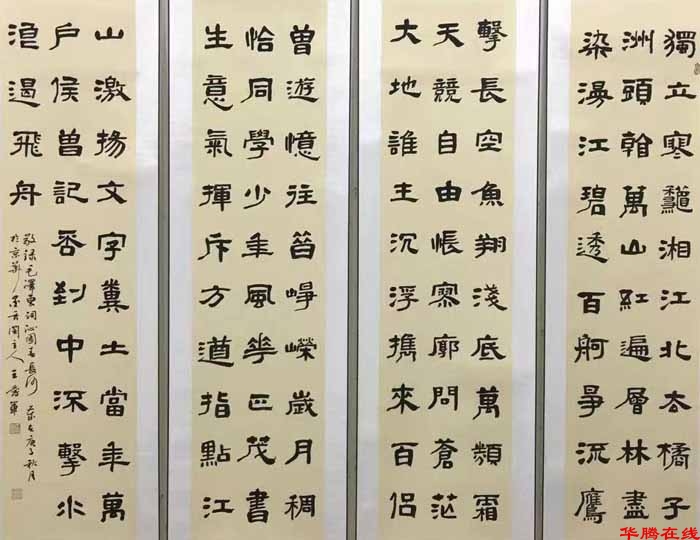 獨立寒龝湘江北去橘子
洲頭看萬山紅遍層林盡
染漫江碧透百舸爭流鷹
擊長空魚翔淺底萬類霜
天競自由悵寥廓問蒼茫
大地誰主沉浮攜來百侶
曾遊憶往昔崢嶸歲月稠
恰同學少年風華正茂書
生意氣揮斥方遒指點江
山激揚文字糞土當年萬
戶侯曾記否到中流擊水
浪遏飛舟
敬錄毛澤東詞沁園春長沙 歲在庚子秋月
於京華 閣主人王軍
华腾在线